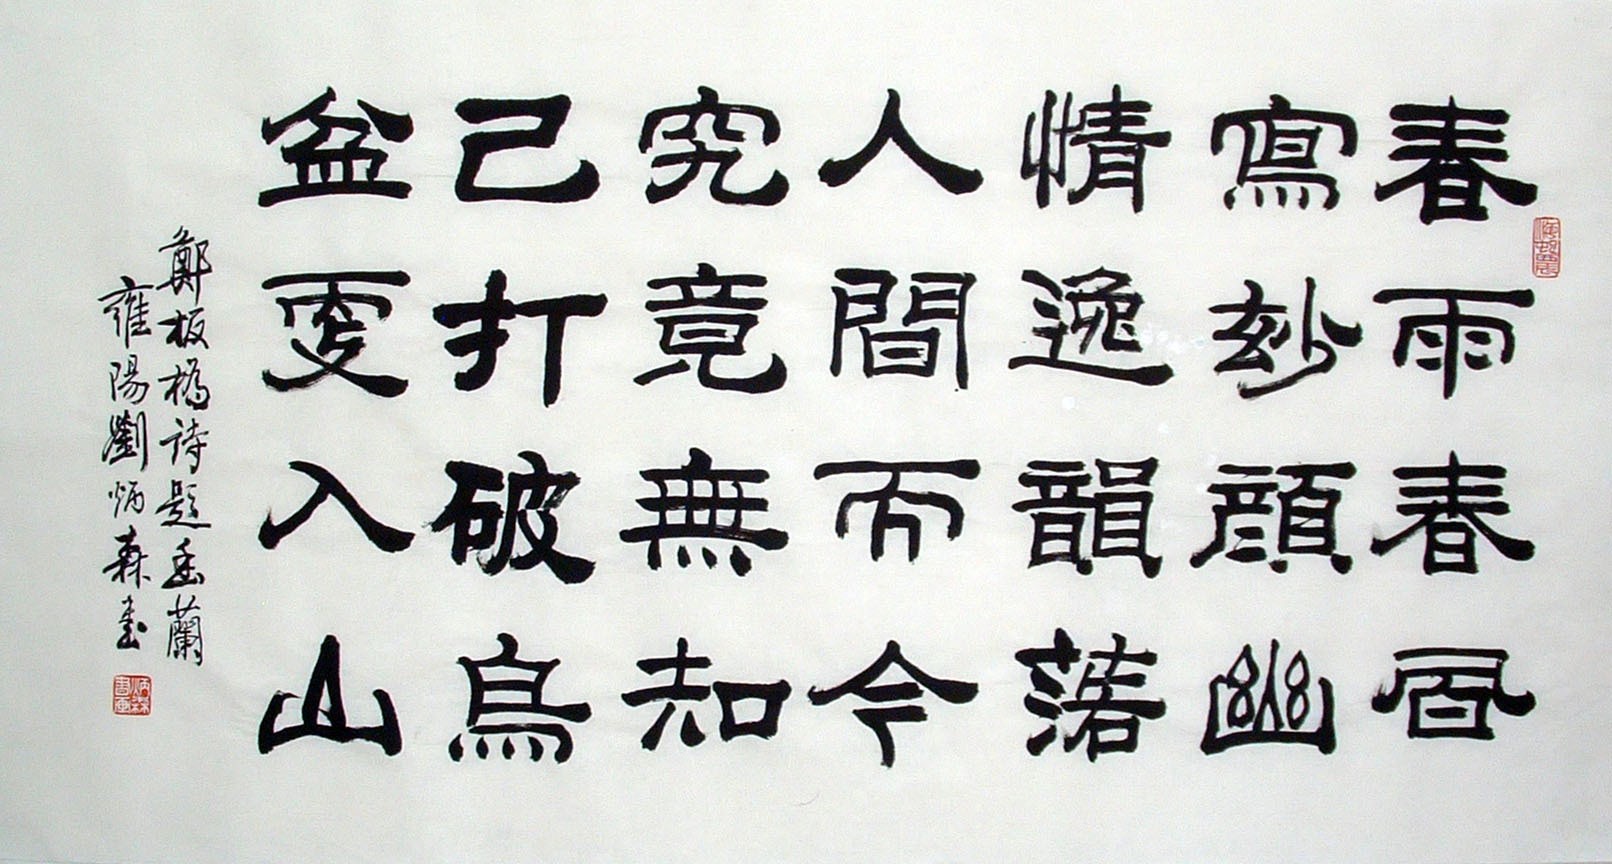 春雨春風
寫妙顔幽
情逸韻落
人間而今
究竟無知
己打破烏
盆更入山
鄭板橋詩題幽蘭
雍陽劉炳森書
炳森書畫